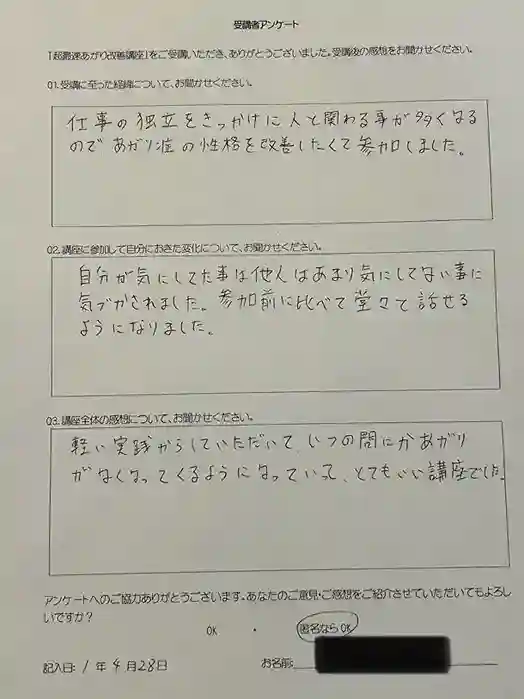 受講者アンケート
「超最速あがり改善講座」をご受講いただき、ありがとうございました。受講後の感想をお聞かせください。
01.受講に至った経緯について、お聞かせください。
仕事の独立をきっかけに人と関わる事が多くなる
のであがり症の性格を改善したくて参加しました。
02.講座に参加して自分におきた変化について、お聞かせください。
自分が気にしてた事は他人はあまり気にしてない事に
気づかされました。参加前に比べて堂々と話せる
ようになりました。
03.講座全体の感想について、お聞かせください。
軽い実践からしていただいて、いつの間にかあがり
がなくなってくるようになっていって、とてもいい講座でした。
アンケートへのご協力ありがとうございます。あなたのご意見・ご感想をご紹介させていただいてもよろし
いですか？
OK ・ 匿名なら OK
記入日: 1 年 4 月 28 日 お名前: